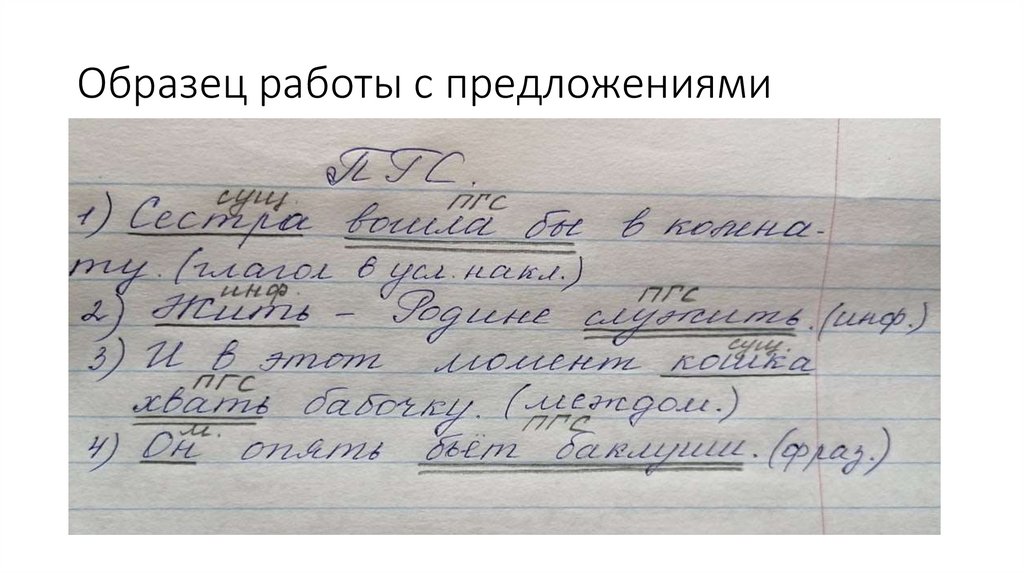 Образец работы с предложениями
ПГС.
сущ. ПГС
1) Сестра вошла бы в комна-
ту. (глагол в усл. накл.)
инф. ПГС
2) Жить – Родине служить. (инф.)
сущ.
3) И в этот момент кошка
ПГС
хвать бабочку. (междом.)
м. ПГС
4) Он опять бьёт баклуши. (фраз.)